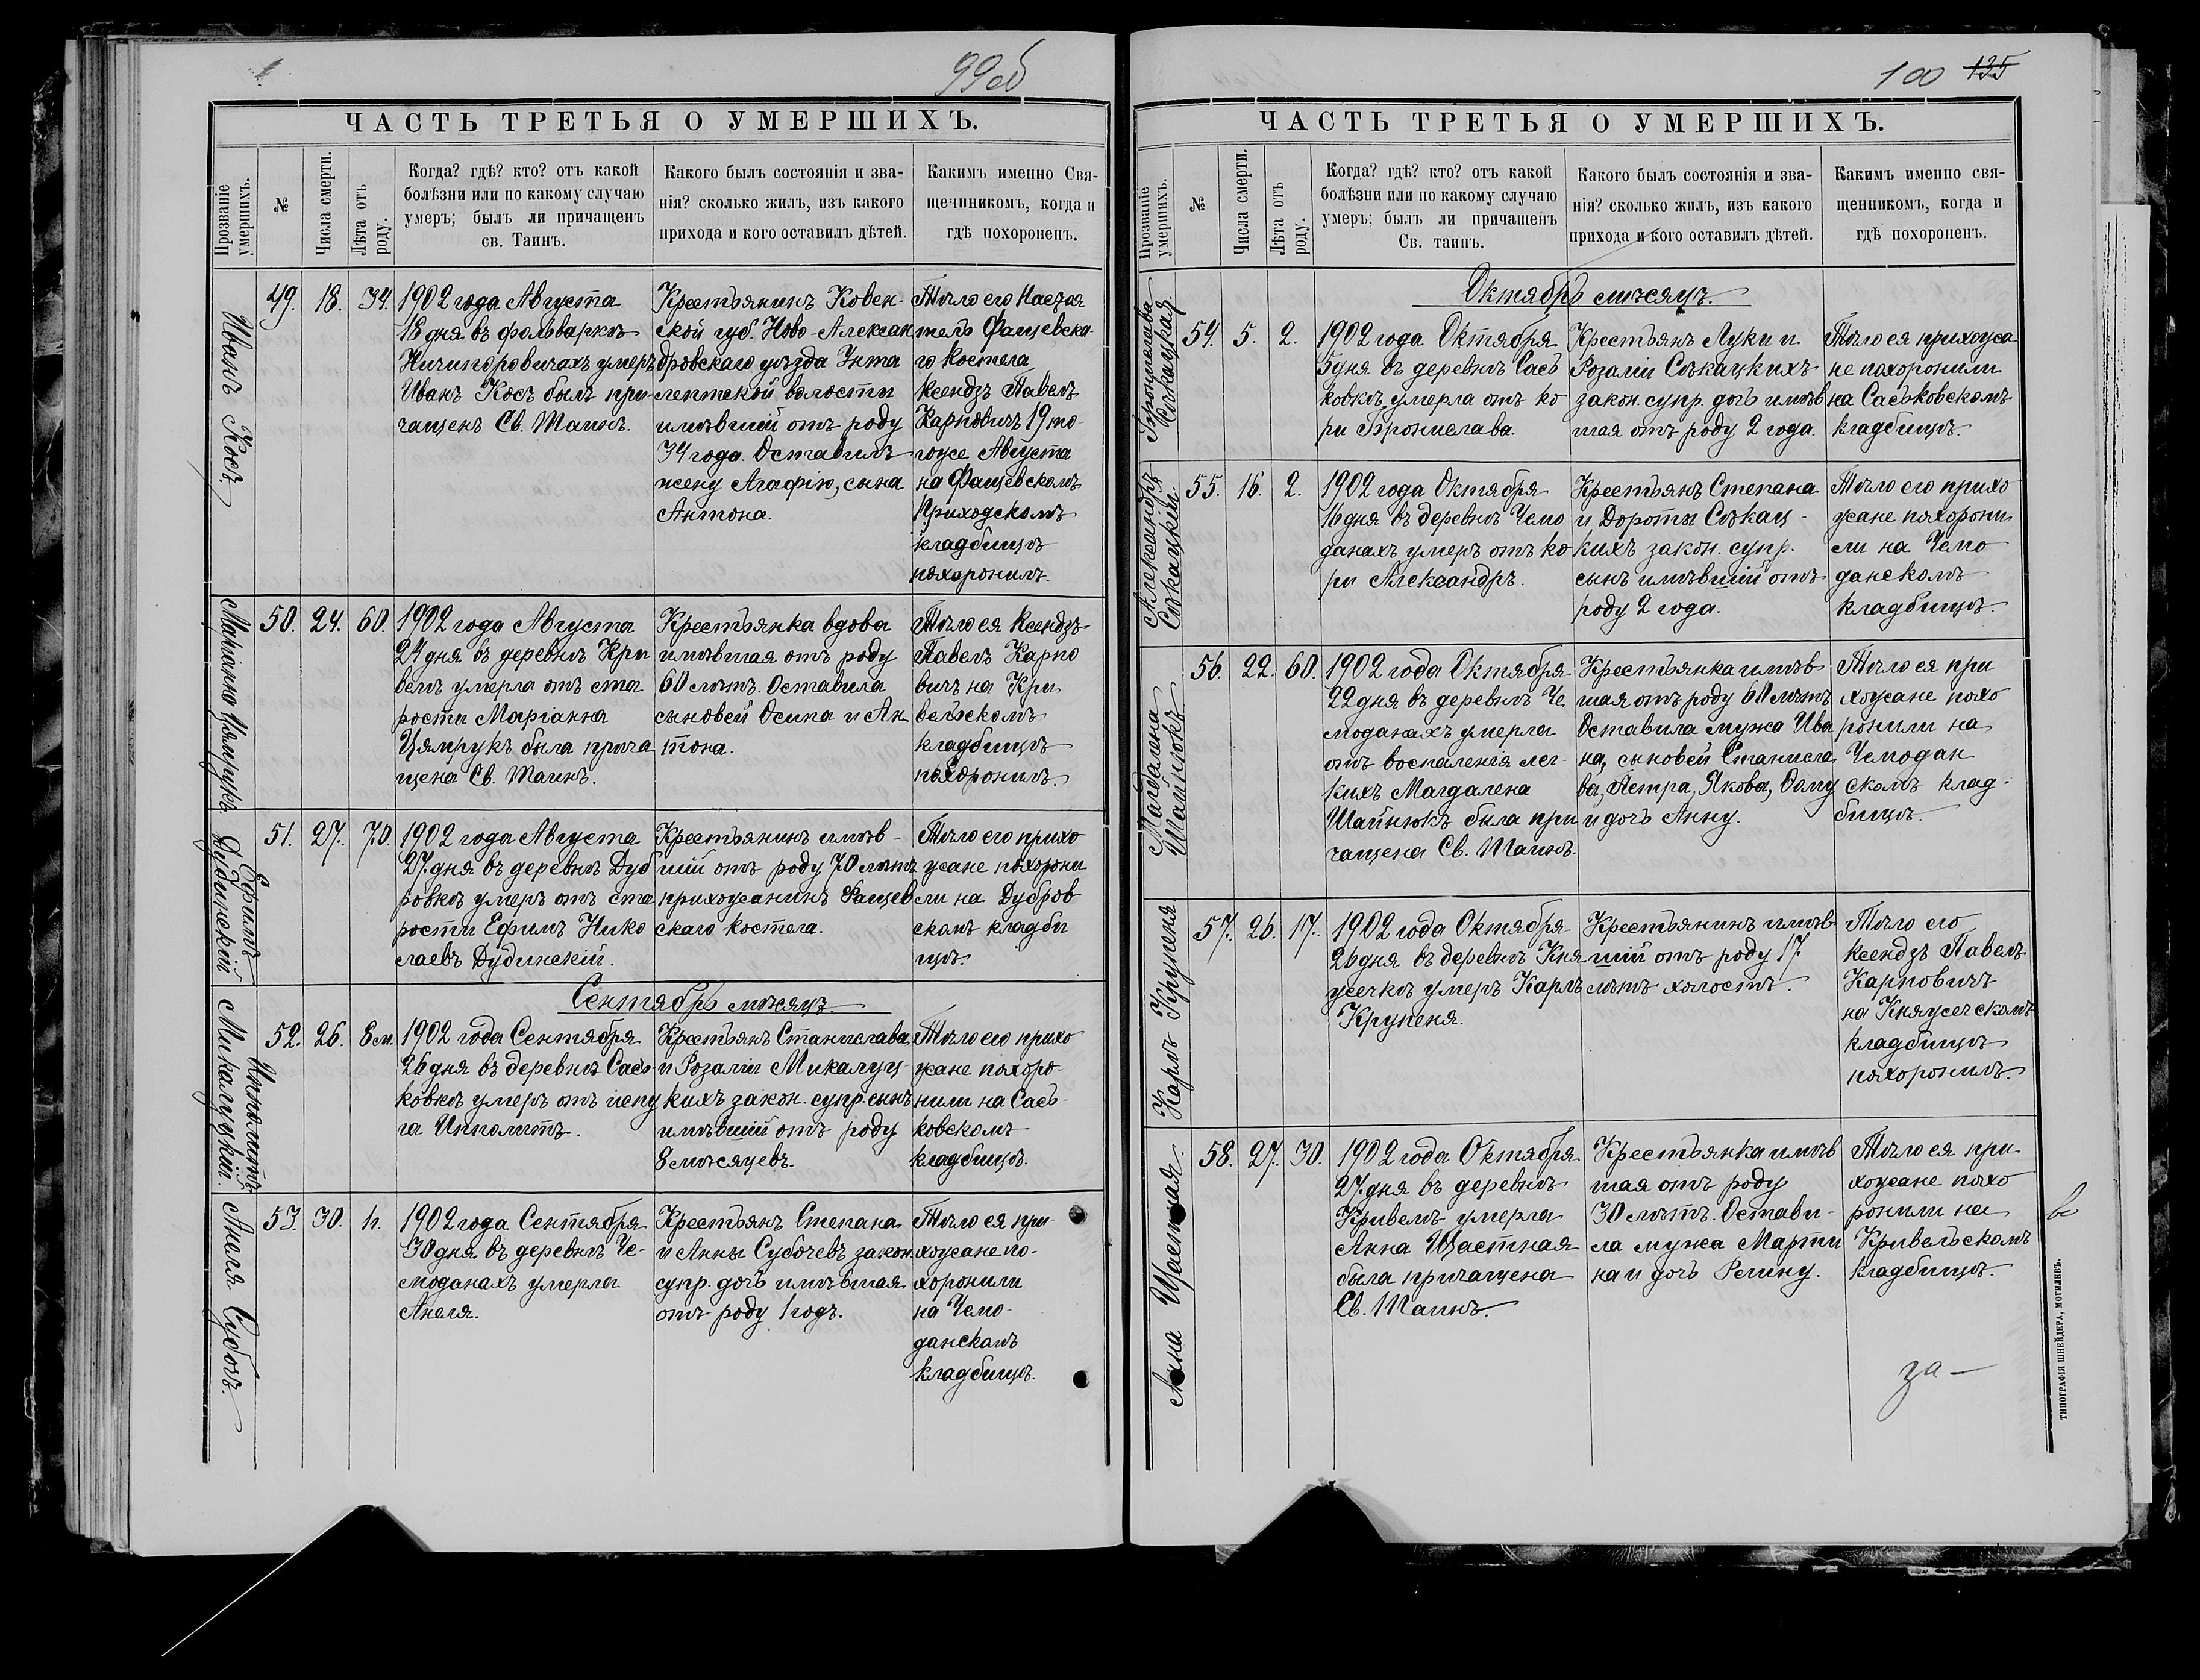 99об
ЧАСТЬ ТРЕТЬЯ О УМЕРШИХЪ.
Прозваніе
умершихъ.
№
Числа смерти.
Лѣта отъ
роду.
Когда? гдѣ? кто? отъ какой
болѣзни или по какому случаю
умеръ; былъ ли причащенъ
св. Таинъ.
Какого былъ состоянія и зва-
нія? сколько жилъ, изъ какого
прихода и кого оставилъ дѣтей.
Какимъ именно Свя-
щенникомъ, когда и
гдѣ похороненъ.
Иванъ Косъ
49.
18.
34.
1902 года Августа
18 дня въ фольваркѣ
Ничипоровичахъ умеръ
Иванъ Косъ былъ при-
чащенъ Св. Таинъ.
Крестьянинъ Ковен-
ской губ. Ново-Алексан
дровскаго уѣзда Унта
лептской волости
имѣвшій отъ роду
34 года. Оставилъ
жену Агафію, сына
Антона.
Тѣло его Настоя
тель Фащевска-
го костела
Ксендзъ Павелъ
Карповичъ 19 то-
гоже Августа
на Фащевскомъ
Приходскомъ
кладбищѣ
похоронилъ.
Маріанна Цямрукъ.
50.
24.
60.
1902 года Августа
24 дня въ деревнѣ Кри
велѣ умерла отъ ста
рости Маріанна
Цямрукъ была прича
щена Св. Таинъ.
Крестьянка вдова
имѣвшая отъ роду
60 лѣтъ. Оставила
сыновей Осипа и Ан
тона.
Тѣло ея Ксендзъ
Павелъ Карпо
вичъ на Кри
вельскомъ
кладбищѣ
похоронилъ.
Ефимъ
Дудинскій
51.
27.
70.
1902 года Августа
27 дня въ деревнѣ Дуб
ровкѣ умеръ отъ ста
рости Ефимъ Нико
лаевъ Дудинскій.
Крестьянинъ имѣв-
шій отъ роду 70 лѣтъ
прихожанинъ Фащев
скаго костела.
Тѣло его прихо
жане похорони
ли на Дубров
скомъ кладби
щѣ.
Сентябрь мѣсяцъ.
Ипполитъ
Микалуцкій.
52.
26.
8 м.
1902 года Сентября
26 дня въ деревнѣ Сась-
ковкѣ умеръ отъ испу
га Ипполитъ.
Крестьянъ Станислава
и Розаліи Микалуц-
кихъ закон. супр. сынъ
имѣвшій отъ роду
8 мѣсяцевъ.
Тѣло его прихо
жане похоро-
нили на Сась-
ковскомъ
кладбищѣ.
Анеля Субочъ.
53.
30.
1 г.
1902 года Сентября
30 дня въ деревнѣ Че-
моданахъ умерла
Анеля.
Крестьянъ Степана
и Анны Субочевъ закон.
супр. дочь имѣвшая
отъ роду 1 годъ.
Тѣло ея при-
хожане по-
хоронили
на Чемо-
данскомъ
кладбищѣ.
100 135
ЧАСТЬ ТРЕТЬЯ О УМЕРШИХЪ.
Прозваніе
умершихъ.
№
Числа смерти.
Лѣта отъ
роду.
Когда? гдѣ? кто? отъ какой
болѣзни или по какому случаю
умеръ; былъ ли причащенъ
Св. таинъ.
Какого былъ состоянія и зва-
нія? сколько жилъ, изъ какого
прихода и кого оставилъ дѣтей.
Какимъ именно свя-
щенникомъ, когда и
гдѣ похороненъ.
Октябрь мѣсяцъ.
Бронислава
Сѣкацкая
54.
5.
2.
1902 года Октября
5 дня въ деревнѣ Сась
ковкѣ умерла отъ ко
ри Бронислава.
Крестьянъ Луки и
Розаліи Сѣкацкихъ
закон. супр. дочь имѣв
шая отъ роду 2 года.
Тѣло ея прихожа
не похоронили
на Саськовскомъ
кладбищѣ.
Александръ
Сѣкацкій.
55.
16.
2.
1902 года Октября
16 дня въ деревнѣ Чемо
данахъ умеръ отъ ко
ри Александръ.
Крестьянъ Степана
и Дороты Сѣкац-
кихъ закон. супр.
сынъ имѣвшій отъ
роду 2 года.
Тѣло его прихо
жане похорони
ли на Чемо
данскомъ
кладбищѣ.
Магдалена
Шайнюкъ
56.
22.
60.
1902 года Октября
22 дня въ деревнѣ Че
моданахъ умерла
отъ воспаленія лег-
кихъ Магдалена
Шайнюкъ была при
чащена Св. Таинъ.
Крестьянка имѣв
шая отъ роду 60 лѣтъ
Оставила мужа Ива
на, сыновей Станисла
ва, Петра, Якова, Ѳому
и дочь Анну.
Тѣло ея при
хожане похо
ронили на
Чемодан
скомъ клад-
бищѣ.
Карлъ Крупеня.
57.
26.
17.
1902 года Октября
26 дня въ деревнѣ Кня
жечкѣ умеръ Карлъ
Крупеня.
Крестьянинъ имѣв-
шій отъ роду 17
лѣтъ холостъ.
Тѣло его
Ксендзъ Павелъ
Карповичъ
на Княжескомъ
кладбищѣ
похоронилъ.
Анна Щастная.
58.
27.
30.
1902 года Октября
27 дня въ деревнѣ
Кривелѣ умерла
Анна Щастная
была причащена
Св. Таинъ.
Крестьянка имѣв
шая отъ роду
30 лѣтъ. Остави-
ла мужа Марти
на и дочь Регину.
Тѣло ея при
хожане похо
ронили на
Кривельскомъ
кладбищѣ.
за—
ТИПОГРАФІЯ ШНЕЙДЕРА, МОГИЛЕВЪ.